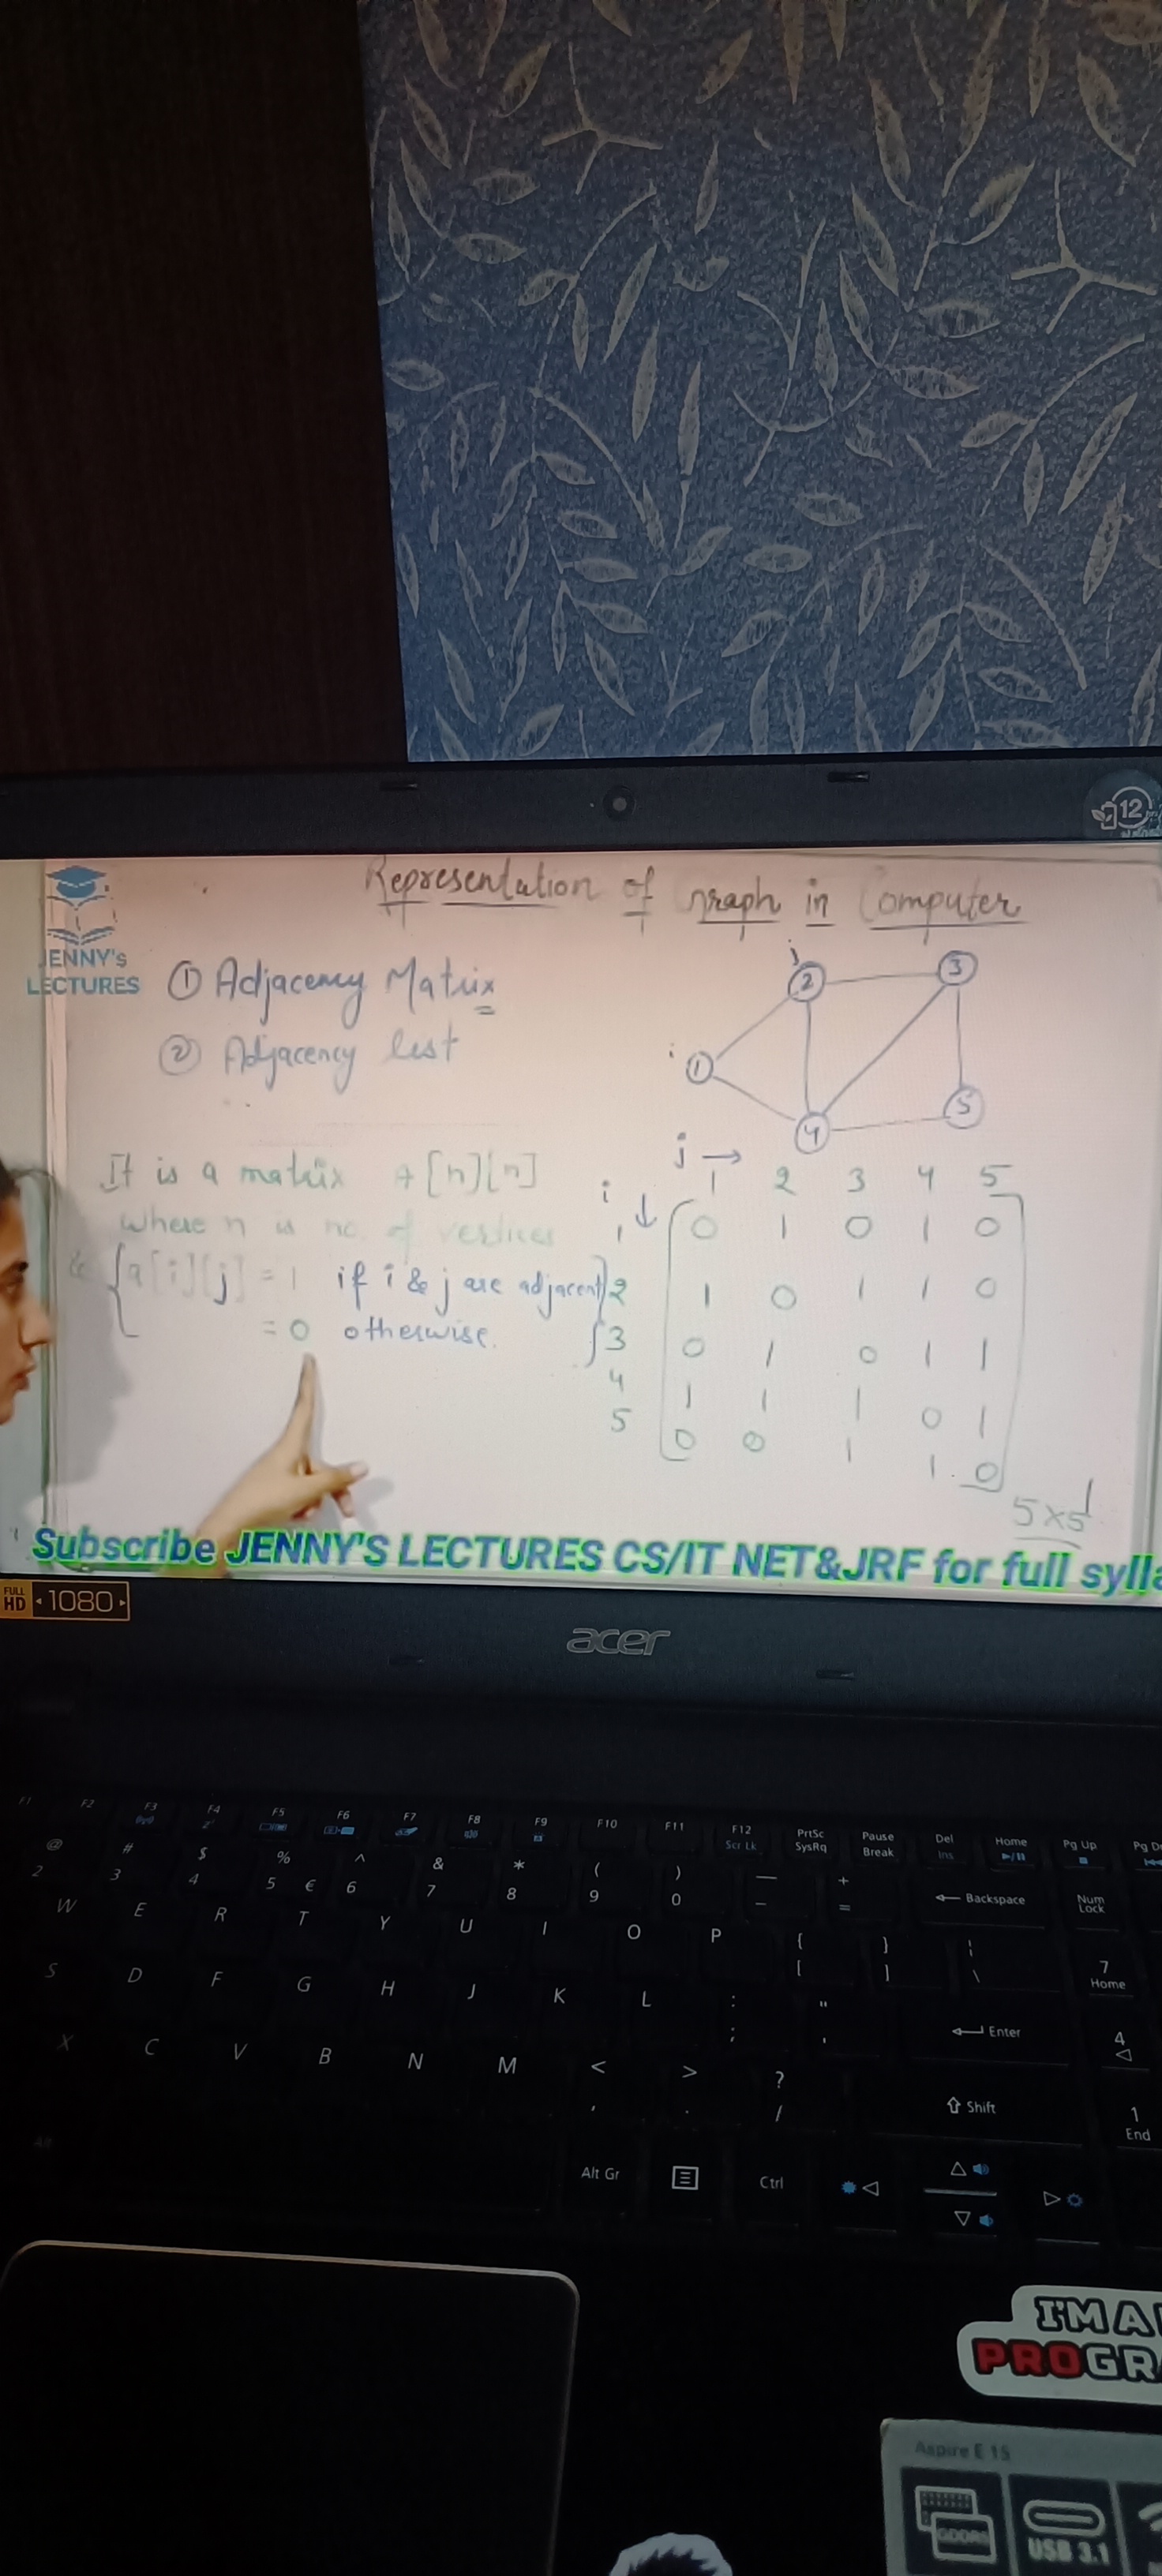 12
Representation of Graph in Computer
JENNY's
LECTURES
① Adjacency Matrix
② Adjacency list
j
2 3
i
1
5
4
It is a matrix A[n][n]
where n is no. of vertices
& { a[i][j] = 1 if i & j are adjacent
= 0 otherwise.
j →
i ↓
1 2 3 4 5
1 0 1 0 1 0
2 1 0 1 1 0
3 0 1 0 1 1
4 1 1 1 0 1
5 0 0 1 1 0
5×5
Subscribe JENNY'S LECTURES CS/IT NET&JRF for full sylla
FULL HD 1080
acer
F1 F2 F3 F4 F5 F6 F7 F8 F9 F10 F11 F12 PrtSc Pause Del Home Pg Up Pg D
Scr Lk SysRq Break Ins
@ # $ % ^ & * ( ) — +
2 3 4 5 € 6 7 8 9 0 - = Backspace Num Lock
W E R T Y U I O P { } ¦
[ ] \ 7
Home
S D F G H J K L : "
; ' Enter 4
X C V B N M < > ?
, . / Shift 1
End
Alt Alt Gr Ctrl
I'M A
PROGR
Aspire E 15
GDDR5
USB 3.1